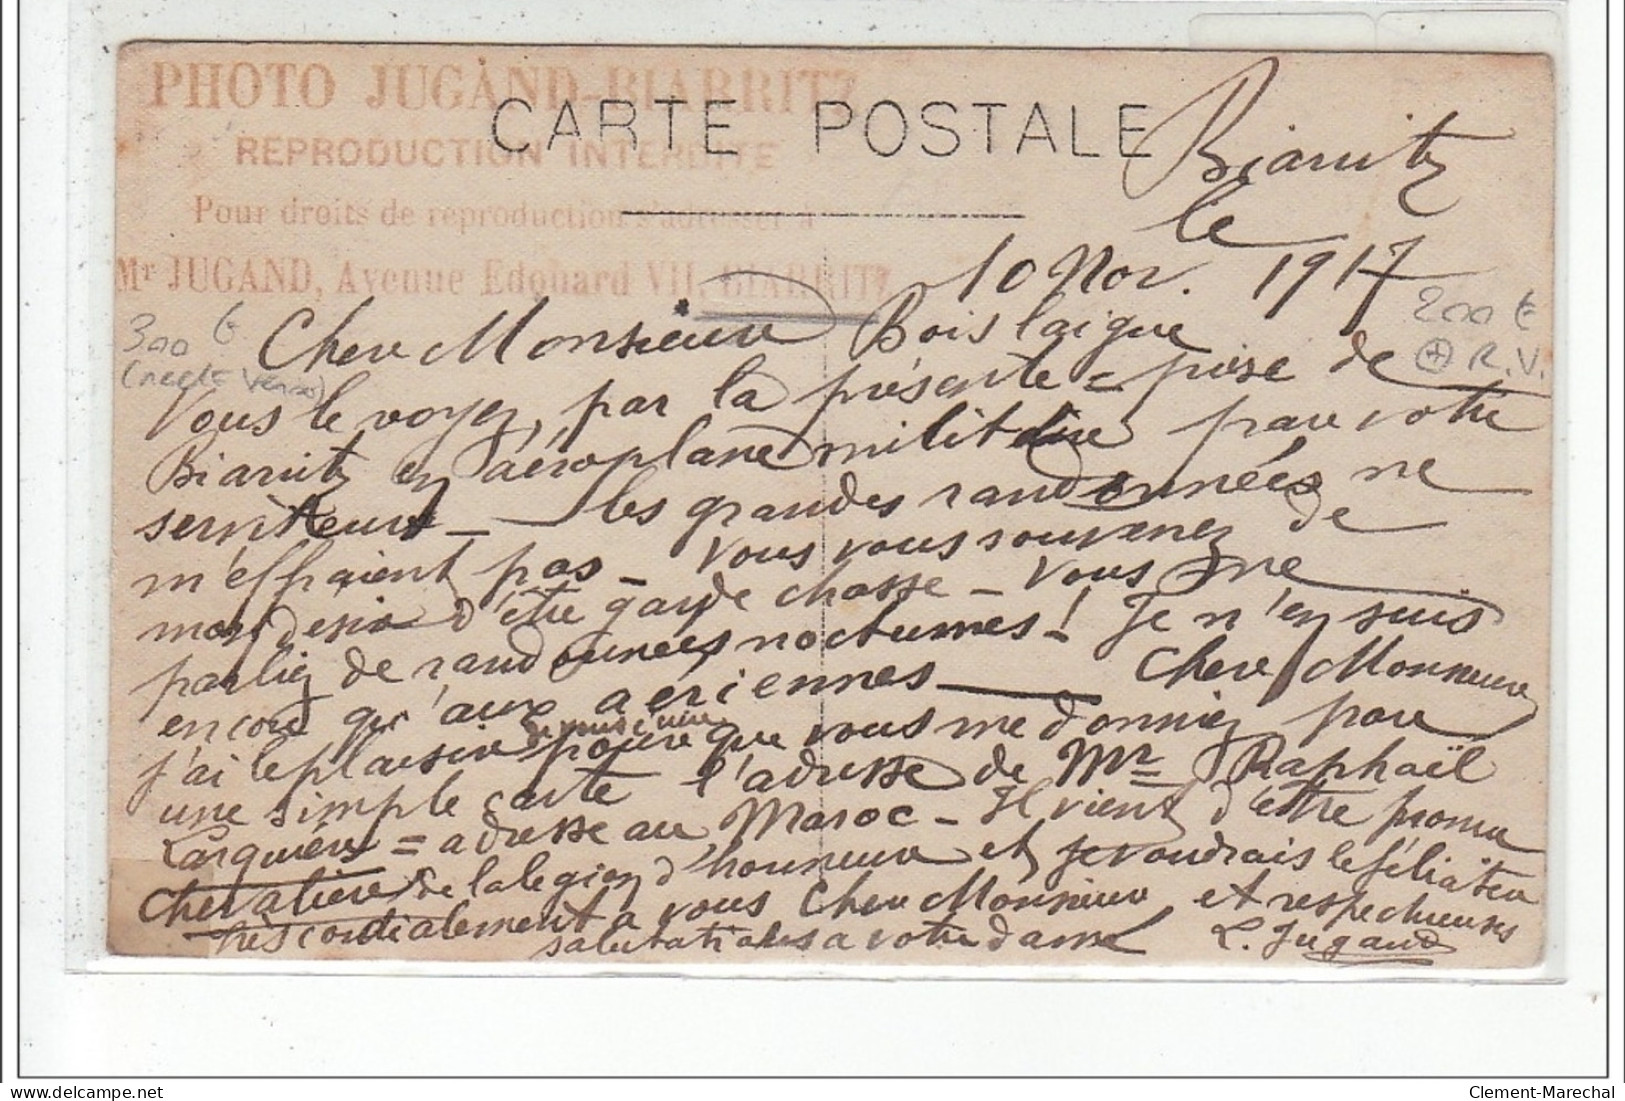 PHOTO JUGAND-BIARRITZ
CARTE POSTALE
REPRODUCTION INTERDITE
Pour droits de reproduction s'adresser à
Mr JUGAND, Avenue Edouard VII, BIARRITZ
Biarritz
le
10 Nov. 1917
300 €
200 €
R.V.
Cher Monsieur Boislaigue
Vous le voyez, par la présente = prise de
Biarritz en aéroplane militaire par votre
serviteur — les grandes randonnées ne
m'effraient pas — Vous vous souvenez de
mon desir d'être garde chasse — Vous me
parliez de randonnées nocturnes! Je n'en suis
encore qu'aux aériennes — Cher Monsieur
j'ai le plaisir pour que vous me donniez par
une simple carte l'adresse de Mr Raphaël
Larguière = adresse au Maroc — Il vient d'être promu
Chevalier de la légion d'honneur et je voudrais le féliciter
très cordialement a vous Cher Monsieur et respectueuses
salutations a votre dame L. Jugand
Clement-Marechal